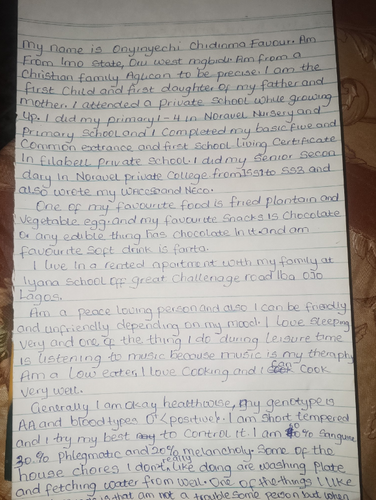 My name is Onyinyechi Chidinma Favour. Am
From Imo State, Oru west mgbidi. Am from a
Christian family Aglican to be precise. I am the
first Child and first daughter of my father and
mother. I attended a private school while growing
up. I did my primary 1-4 in Noravel Nursery and
Primary school and I Completed my basic five and
Common extrance and first school Living Certificate
In Filabell private school. I did my Senior Secon
dary In Noravel private College from SS1 to SS3 and
also wrote my WAEC and Neco.
One of my favourite food is fried plantain and
Vegetable egg. and my favourite Snacks is Chocolate
or any edible thing has chocolate In it. and am
favourite Soft drink is fanta.
I live In a rented apartment with my family at
Iyana School off great challenage road Iba Ojo
Lagos.
Am a peace loving person and also I can be friendly
and unfriendly depending on my mood. I love sleeping
very and one of the thing I do during leisure time
Is listening to music because music is my theraphy
Am a Low eater, I love Cooking and I can Cook
very well.
Generally I am okay healthwise, my genotype is
AA and blood type is O+ (positive). I am short tempered
and I try my best to control it. I am 50% Sanguine
30% Phlegmatic and 20% melancholy. Some of the
house chores I don't really like doing are washing plate
and fetching water from well. One of the things I like
is that am not a trouble some person but when